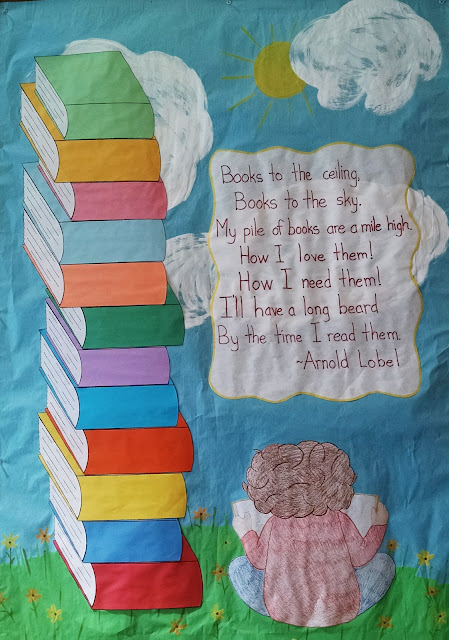 Books to the ceiling,
Books to the sky.
My pile of books are a mile high.
How I love them!
How I need them!
I'll have a long beard
By the time I read them.
~Arnold Lobel